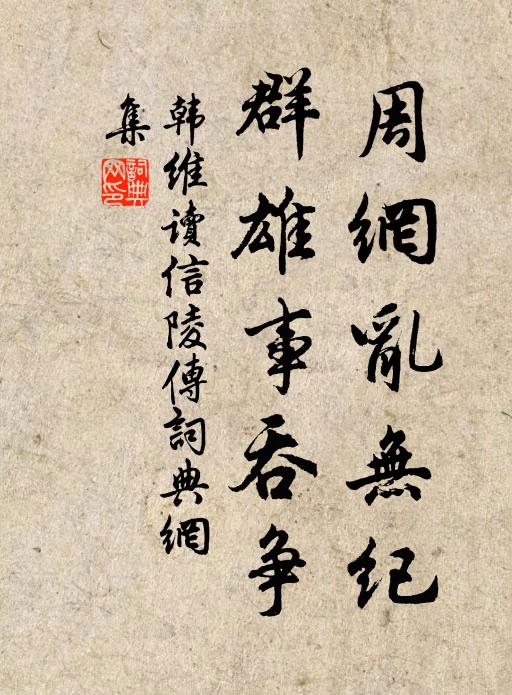 周網亂無紀
群雄事吞爭
韩維讀信陵傳詞典網
集
詞典
网印